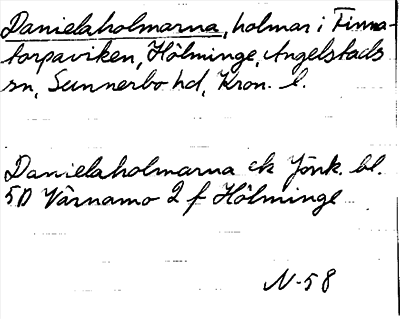 Danielaholmarna, holmar i Finna-
torpaviken, Hölminge, Angelstads
sn, Sunnerbo hd, Kron. l.
Danielaholmarna ek Jönk. bl.
5D Värnamo 2 f Hölminge
N-58